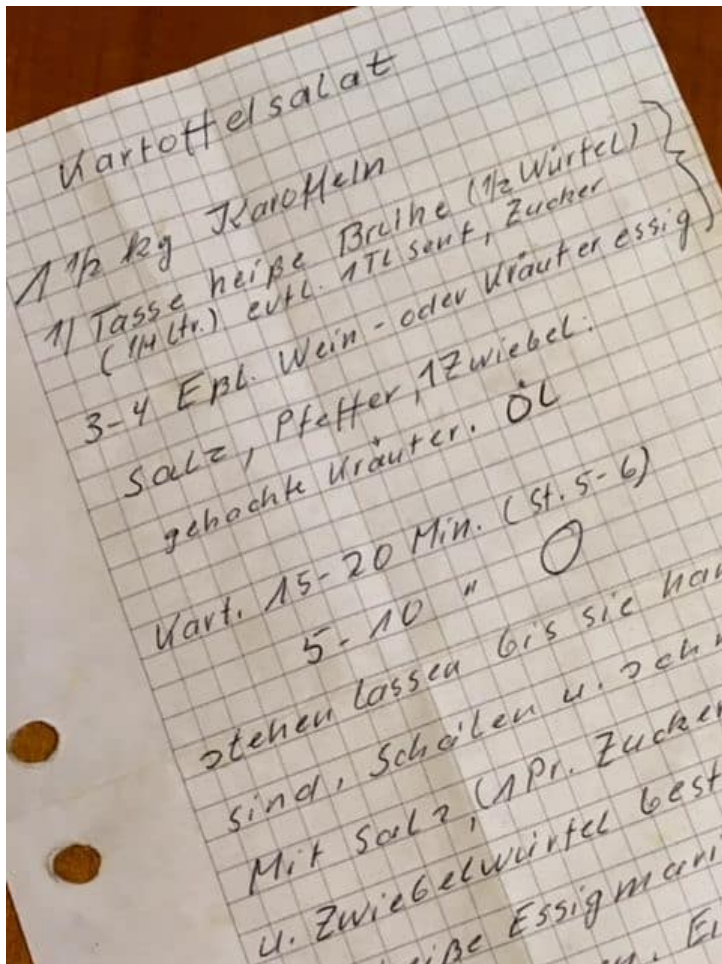 Kartoffelsalat
1 1/2 kg Karoffeln
1) Tasse heiße Brühe (1/2 Würfel)
(1/4 Ltr.) evtl. 1 TL Senf, Zucker
3-4 Eßl. Wein- oder Kräuteressig
Salz, Pfeffer, 1 Zwiebel.
gehackte Kräuter. Öl
Kart. 15-20 Min. (St. 5-6)
5-10 " O
stehen lassen bis sie
sind, Schälen u.
Mit Salz, (1 Pr. Zucker
u. Zwiebelwürfel
Essigmari